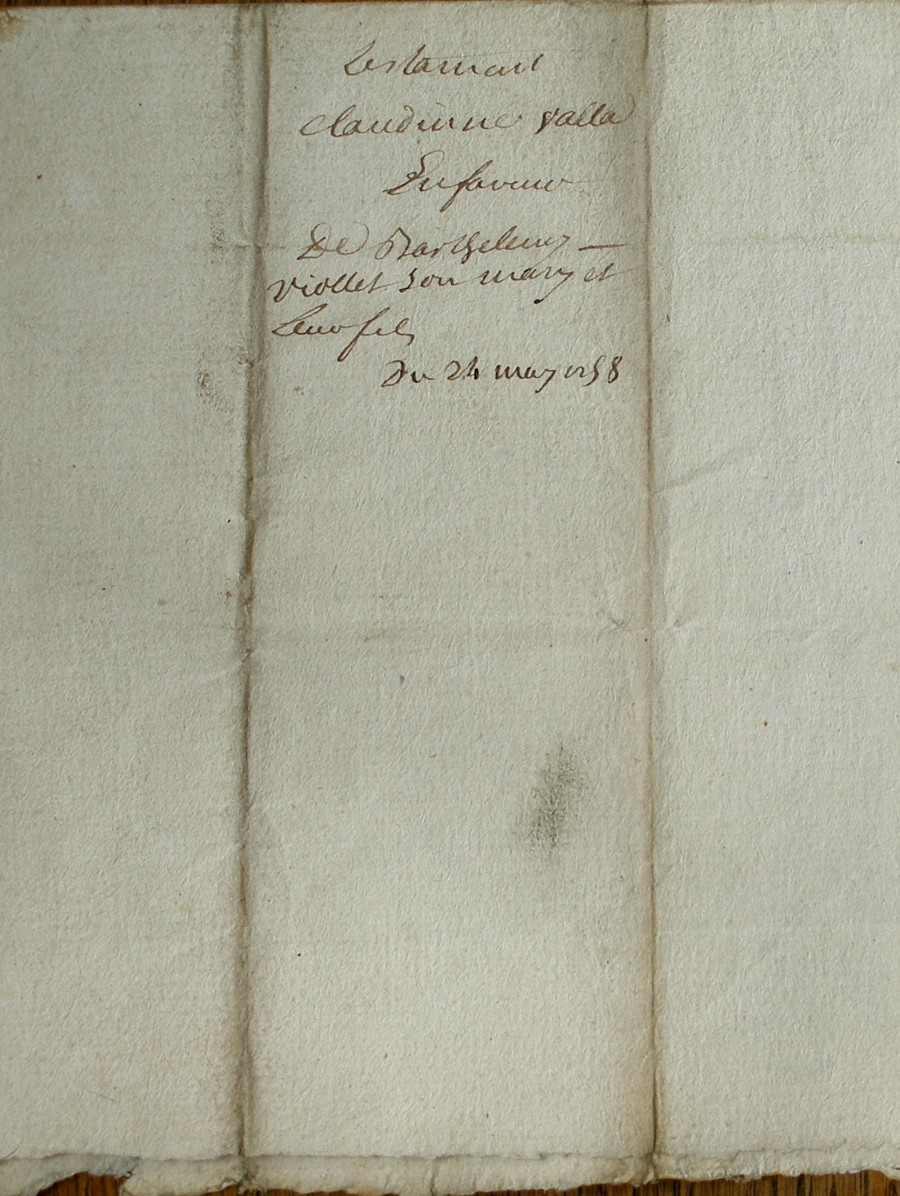 testament
claudinne valla
En faveur
De Barthelemy
viollet son mary et
leur fils
Du 24 may 1758